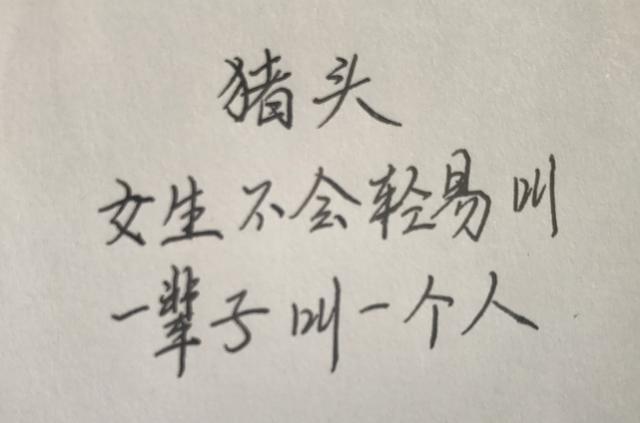 猪头
女生不会轻易叫
一辈子叫一个人